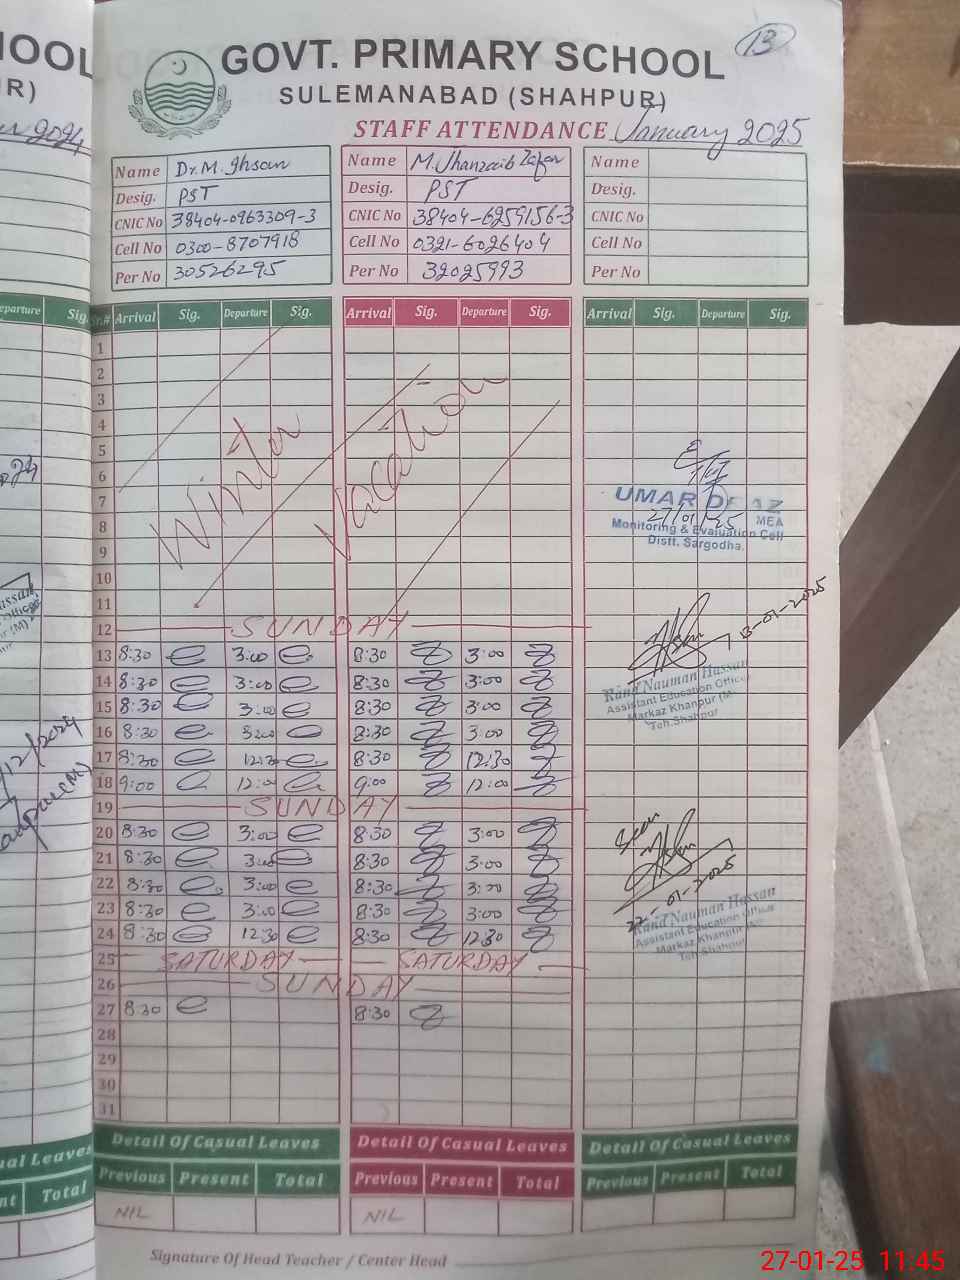 13
GOVT. PRIMARY SCHOOL
SULEMANABAD (SHAHPUR)
STAFF ATTENDANCE January 2025
Name Dr. M. Ihsan Name M. Jhanzaib Zafar Name
Desig. PST Desig. PST Desig.
CNIC No 38404-0963309-3 CNIC No 38404-6259156-3 CNIC No
Cell No 0300-8707918 Cell No 0321-6026404 Cell No
Per No 30526295 Per No 32025993 Per No
Sr.# Arrival Sig. Departure Sig. Arrival Sig. Departure Sig. Arrival Sig. Departure Sig.
1
2
3
4
5
6
7
8
9
10
11
Winter Vacation
UMAR DRAZ
27/01/25 MEA
Monitoring & Evaluation Cell
Distt. Sargodha.
12 SUNDAY
13 8:30 3:00 8:30 3:00
14 8:30 3:00 8:30 3:00
15 8:30 3:00 8:30 3:00
16 8:30 3:00 8:30 3:00
17 8:30 12:30 8:30 12:30
18 9:00 12:00 9:00 12:00
13-01-2025
Rana Nauman Hassan
Assistant Education Officer
Markaz Khanpur (M)
Teh.Shahpur
19 SUNDAY
20 8:30 3:00 8:30 3:00
21 8:30 3:00 8:30 3:00
22 8:30 3:00 8:30 3:00
23 8:30 3:00 8:30 3:00
24 8:30 12:30 8:30 12:30
Seen
22-01-2025
Rana Nauman Hassan
Assistant Education Officer
Markaz Khanpur (M)
Teh.Shahpur
25 SATURDAY SATURDAY
26 SUNDAY
27 8:30 8:30
28
29
30
31
Detail Of Casual Leaves Detail Of Casual Leaves Detail Of Casual Leaves
Previous Present Total Previous Present Total Previous Present Total
NIL NIL
Signature Of Head Teacher / Center Head
27-01-25 11:45